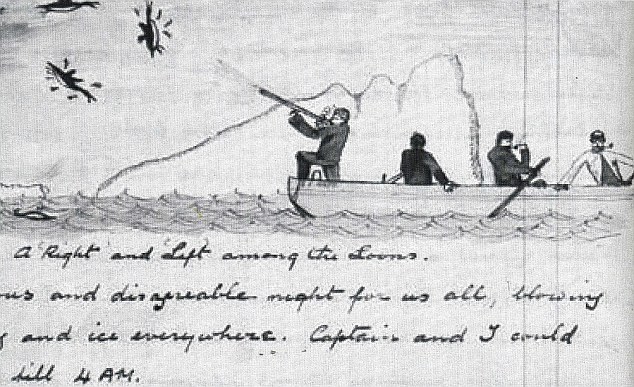 A "Right" and "Left" among the Loons.
ous and disagreeable night for us all, blowing
g and ice everywhere. Captain and I could
till 4 AM.